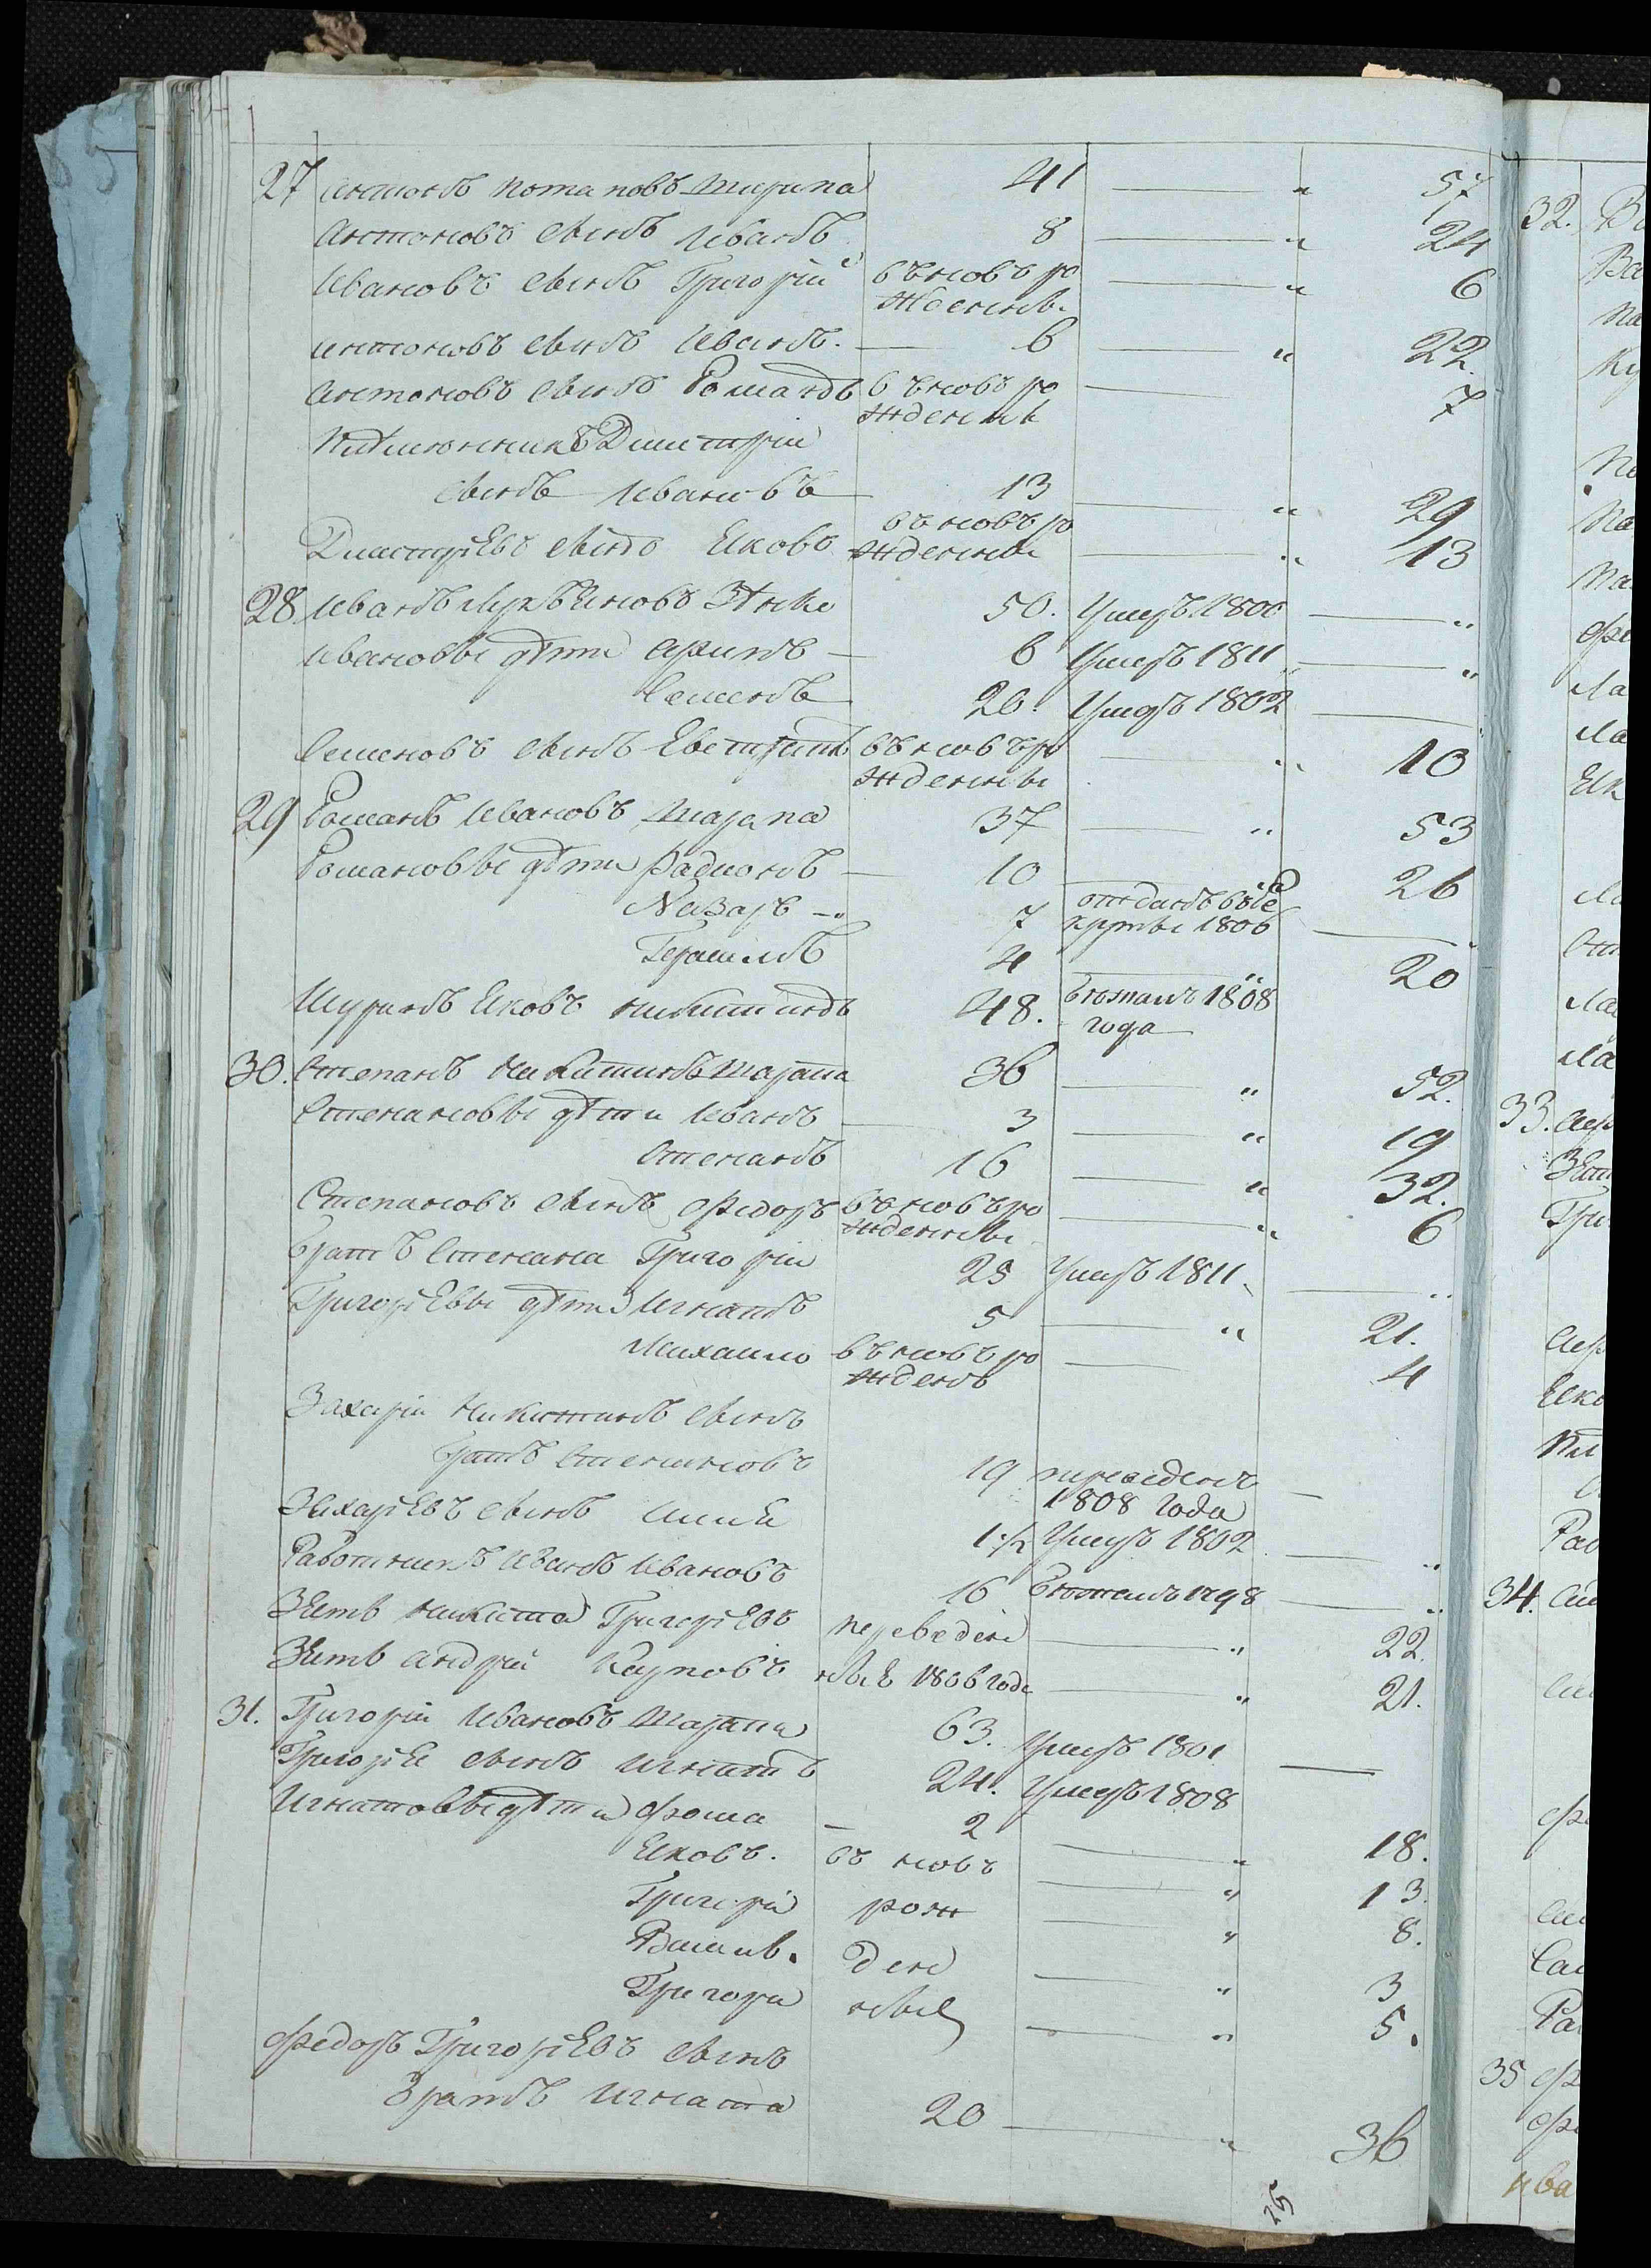 27 Антонъ Потаповъ Шарапа 41 — " 57
Антоновъ сынъ Иванъ 8 — " 24
Ивановъ сынъ Григорій въ новь ро — " 6
жденны
Антоновъ сынъ Иванъ. — 6 — " 22.
Антоновъ сынъ Романъ въ новь ро — 7
жденны
Племенникъ Дмитрій
сынъ Ивановъ 13 — " 29
въ новь ро
Дмитрҍевъ сынъ Яковъ жденны — " 13
28. Иванъ 50. Умеръ 1806 — "
Ивановы дѣти Архипъ — 6 Умеръ 1811 — "
Семенъ 20. Умеръ 1802 —
Семеновъ сынъ въ новь ро — " 10
жденны
29 Романъ Ивановъ Шарапа 37 — " 53
Романовы дѣти Радионъ — 10 — " 26
Назаръ — 7 отданъ въ ре
круты 1806 —
Герасимъ 4 — " 20
Шуринъ Яковъ Никитинъ 48. бѣжалъ 1808
года
30. Степанъ Никитинъ Шарапа 36 — " 52.
Степановы дѣти Иванъ — 3 — " 19
Степанъ 16 — " 32.
Степановъ сынъ Федоръ въ новь ро — " 6
жденны
братъ Степана Григорій 25 Умеръ 1811 — "
Григорьевы дѣти Игнатъ 5 — " 21.
Михаило въ новь ро — 4
жденъ
Захарій Никитинъ сынъ
братъ Степановъ 19 переведенъ —
1808 года
Захарьевъ сынъ Илья 1 ½ Умеръ 1802 — "
Работникъ Иванъ Ивановъ 16 бѣжалъ 1798 — "
Зять Никита Григорьевъ переведен — " 22.
Зять Андрей Карповъ ные 1806 годе — " 21.
31. Григорій Ивановъ Шарапа 63. Умеръ 1801 —
Григорья сынъ Игнатъ 24. Умеръ 1808
Игнатовы дѣти Фома — 2 — " 18.
Яковъ. въ новь — " 13.
Григорій рож — " 8.
ден — " 3
Григори ные — " 5.
Федоръ Григорьевъ сынъ
братъ Игната 20 — " 36
32.
33.
34.
35